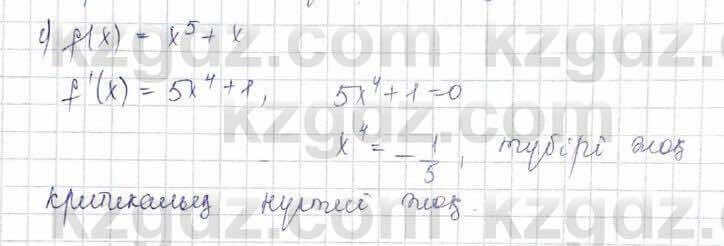 с) f(x) = x⁵ + x
f'(x) = 5x⁴ + 1, 5x⁴ + 1 = 0
x⁴ = -1/5, түбірі жоқ
критикалық нүктесі жоқ.
kzgdz.com kzgdz.com
kzgdz.com